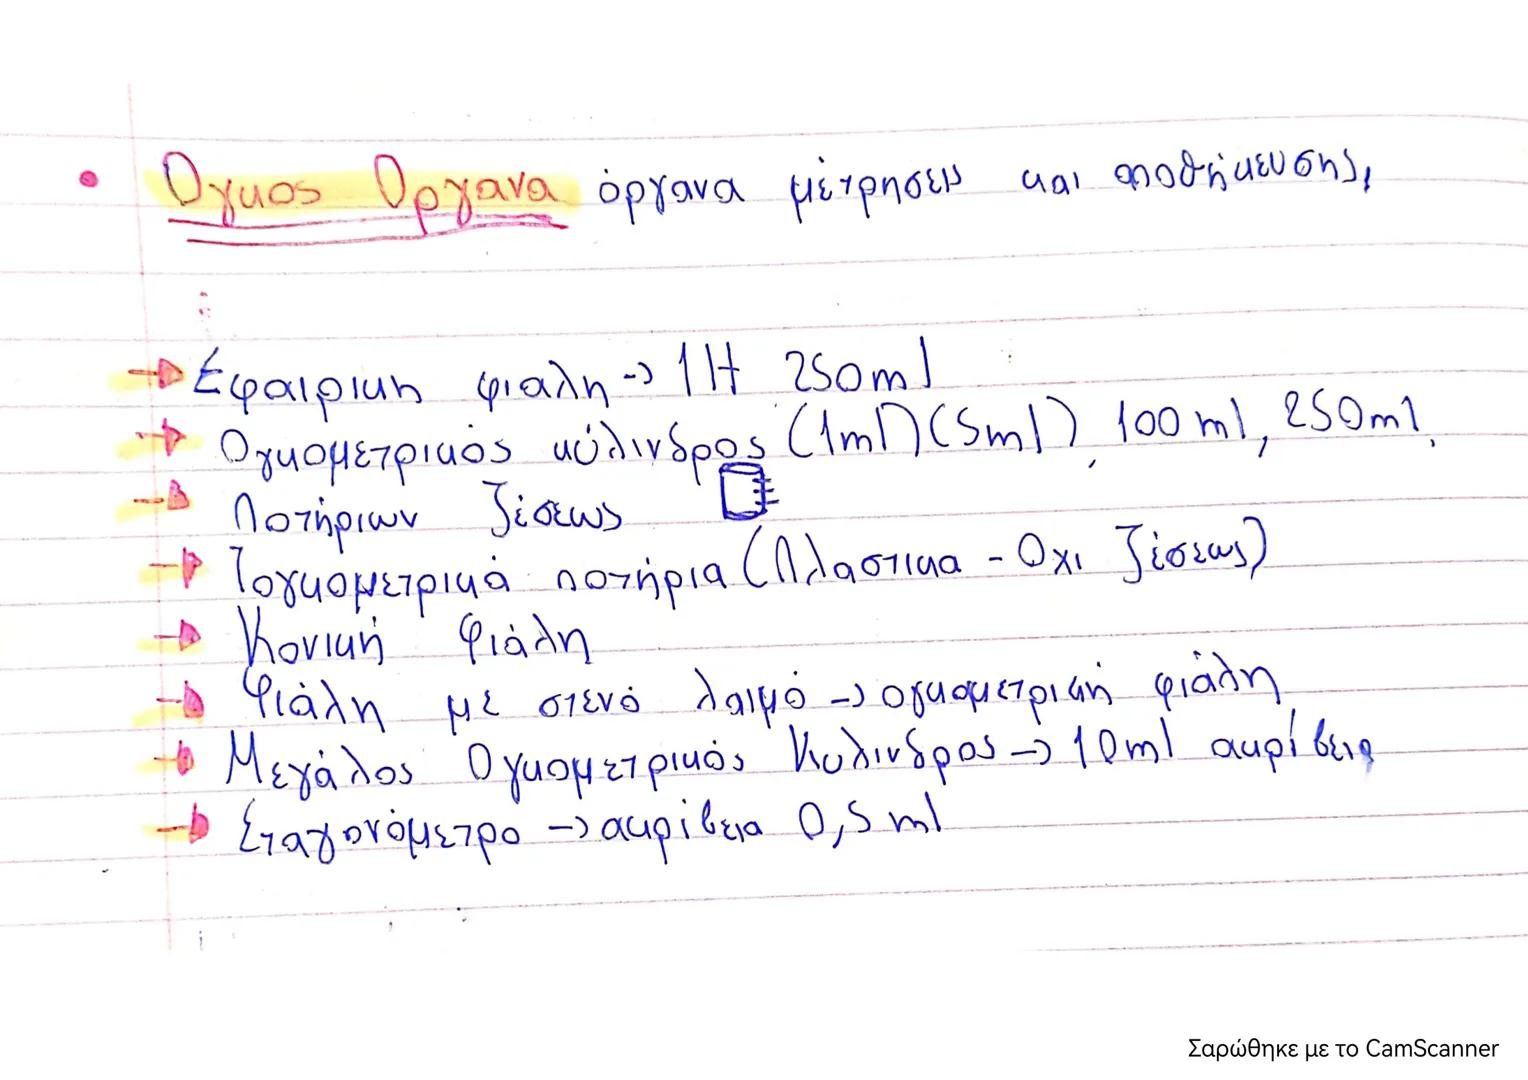 • Ογκος Οργανα όργανα μέτρησεις και αποθήκευσης,
→ Σφαιρικη φιαλη -> 1Η 250ml
→ Ογκομετρικός κύλινδρος (1ml) (5ml), 100 ml, 250ml,
→ Ποτήριων Ζέσεως
→ Τογκομετρικά ποτήρια (Πλαστικα - Οχι Ζέσεως)
→ Κονική Φιάλη
→ Φιάλη με στενό λαιμό -> ογκομετρική φιάλη
→ Μεγάλος Ογκομετρικός Κυλινδρος -> 10ml ακρίβεια
→ Σταγονόμετρο -> ακρίβεια 0,5 ml
Σαρώθηκε με το CamScanner